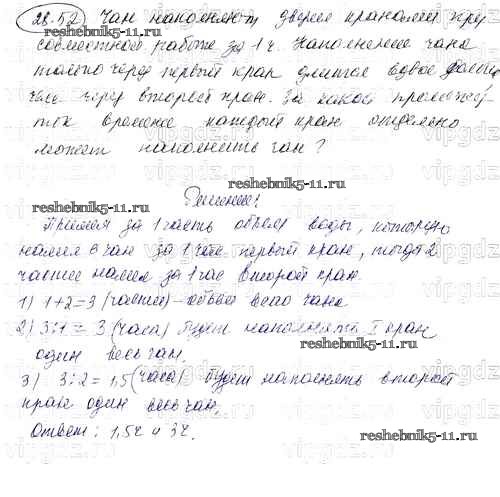 28.52 Чан наполняют двумя кранами при
совместной работе за 1 ч. Наполнение чана
только через первый кран длится вдвое больше
чем через второй кран. За какой промежу-
ток времени каждый кран отдельно
может наполнить чан?
Решение:
Примем за 1 часть объем воды, которую
налил в чан за 1 час первый кран, тогда 2
части налил за 1 час второй кран.
1) 1+2=3 (части) - объем всего чана
2) 3:1 = 3 (часа) будет наполнять I кран
один весь чан.
3) 3:2 = 1,5 (часа) будет наполнять второй
кран один весь чан.
Ответ: 1,5ч и 3ч.
reshebnik5-11.ru
reshebnik5-11.ru
reshebnik5-11.ru
reshebnik5-11.ru
reshebnik5-11.ru
vipgdz.ru